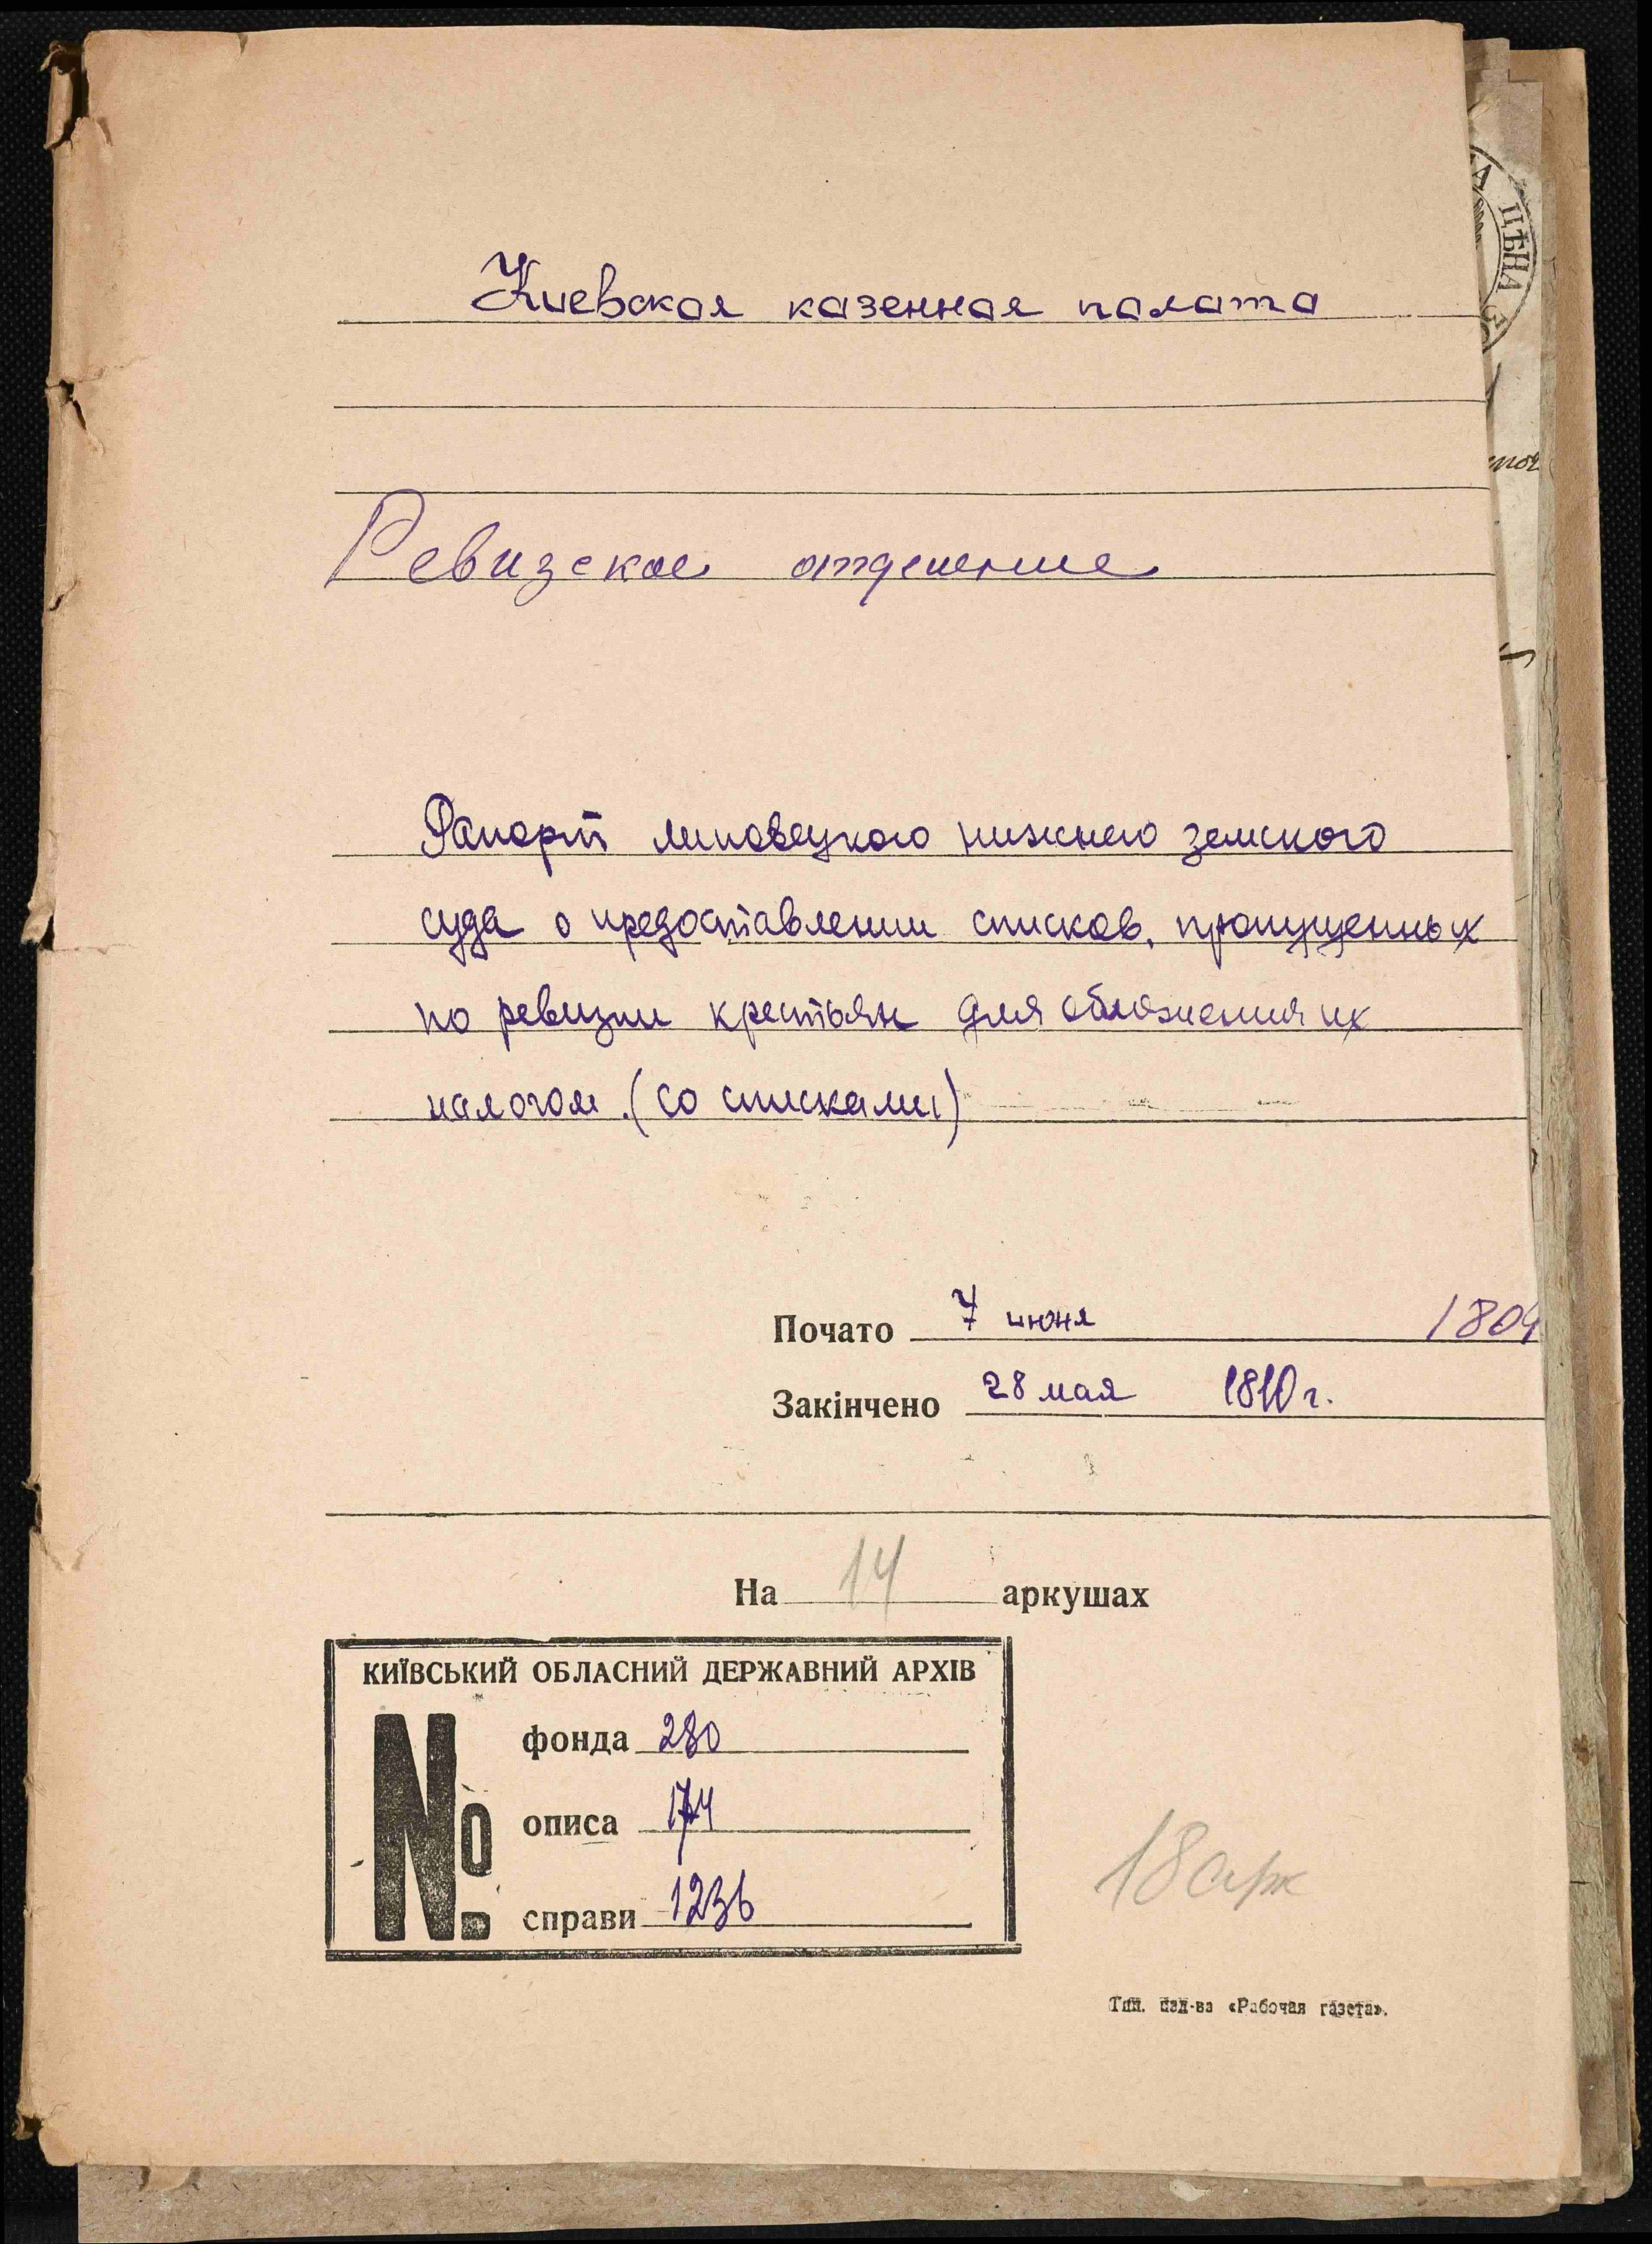 Киевская казенная палата
Ревизское отделение
Рапорт липовецкого нижнего земского
суда о предоставлении списков, пропущенных
по ревизии крестьян для обложения их
налогом. (со списками)
Почато 7 июня 1804
Закінчено 28 мая 1810 г.
На 14 аркушах
КИЇВСЬКИЙ ОБЛАСНИЙ ДЕРЖАВНИЙ АРХІВ
№ фонда 280
описа 174
справи 1236
18 арк
Тип. изд-ва «Рабочая газета».
ЦѢНА